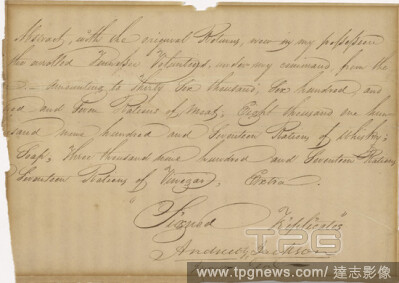 Abstract, with the original Returns, now in my possession
the enrolled Tennessee Volunteers, under my command, from the
amounting to Thirty Six thousand, Six hundred and
and Seven Rations of Meat, Eight thousand one hun
sand nine hundred and Seventeen Rations of Whiskey;
Soap, Three thousand nine hundred and Seventeen Rations
Seventeen Rations of Vinegar, Extra.
Signed Triplicates
Andrew Jackson
TPG NEWS.COM
www.tpgnews.com / 達志影像